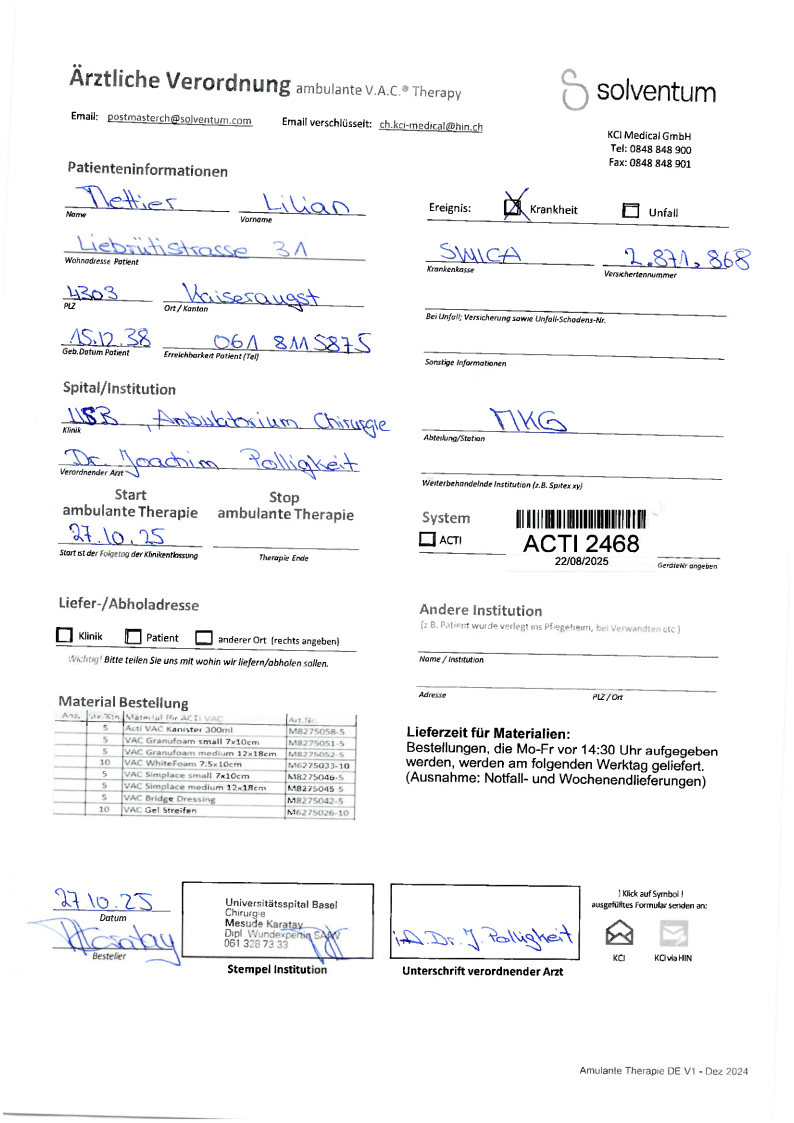 Ärztliche Verordnung ambulante V.A.C.® Therapy
solventum
Email: postmasterch@solventum.com Email verschlüsselt: ch.kci-medical@hin.ch
KCI Medical GmbH
Tel: 0848 848 900
Fax: 0848 848 901
Patienteninformationen
Mettier Lilian
Name Vorname
Ereignis: Krankheit Unfall
Liebrütistrasse 31
Wohnadresse Patient
SWICA 2.871.868
Krankenkasse Versichertennummer
4303 Kaiseraugst
PLZ Ort / Kanton
Bei Unfall; Versicherung sowie Unfall-Schadens-Nr.
15.12.38 061 811 5875
Geb.Datum Patient Erreichbarkeit Patient (Tel)
Sonstige Informationen
Spital/Institution
USB, Ambulatorium Chirurgie
Klinik
MKG
Abteilung/Station
Dr. Joachim Polligkeit
Verordnender Arzt
Weiterbehandelnde Institution (z.B. Spitex xy)
Start ambulante Therapie
Stop ambulante Therapie
27.10.25
Start ist der Folgetag der Klinikentlassung Therapie Ende
System
ACTI
ACTI 2468
22/08/2025
GeräteNr angeben
Liefer-/Abholadresse
Klinik Patient anderer Ort (rechts angeben)
Wichtig! Bitte teilen Sie uns mit wohin wir liefern/abholen sollen.
Andere Institution
(z.B. Patient wurde verlegt ins Pflegeheim, bei Verwandten etc.)
Name / Institution
Adresse PLZ / Ort
Material Bestellung
Anz. Stk/Ktn Material für ACTI VAC Art.Nr.
5 Acti VAC Kanister 300ml M8275058-5
5 VAC Granufoam small 7x10cm M8275051-5
5 VAC Granufoam medium 12x18cm M8275052-5
10 VAC WhiteFoam 7.5x10cm M6275033-10
5 VAC Simplace small 7x10cm M8275046-5
5 VAC Simplace medium 12x18cm M8275045-5
5 VAC Bridge Dressing M8275042-5
10 VAC Gel Streifen M6275026-10
Lieferzeit für Materialien:
Bestellungen, die Mo-Fr vor 14:30 Uhr aufgegeben
werden, werden am folgenden Werktag geliefert.
(Ausnahme: Notfall- und Wochenendlieferungen)
27.10.25
Datum
Karatay
Besteller
Universitätsspital Basel
Chirurgie
Mesude Karatay
Dipl. Wundexpertin SAfW
061 328 73 33
Stempel Institution
i.A. Dr. J. Polligkeit
Unterschrift verordnender Arzt
! Klick auf Symbol !
ausgefülltes Formular senden an:
KCI KCI via HIN
Amulante Therapie DE V1 - Dez 2024